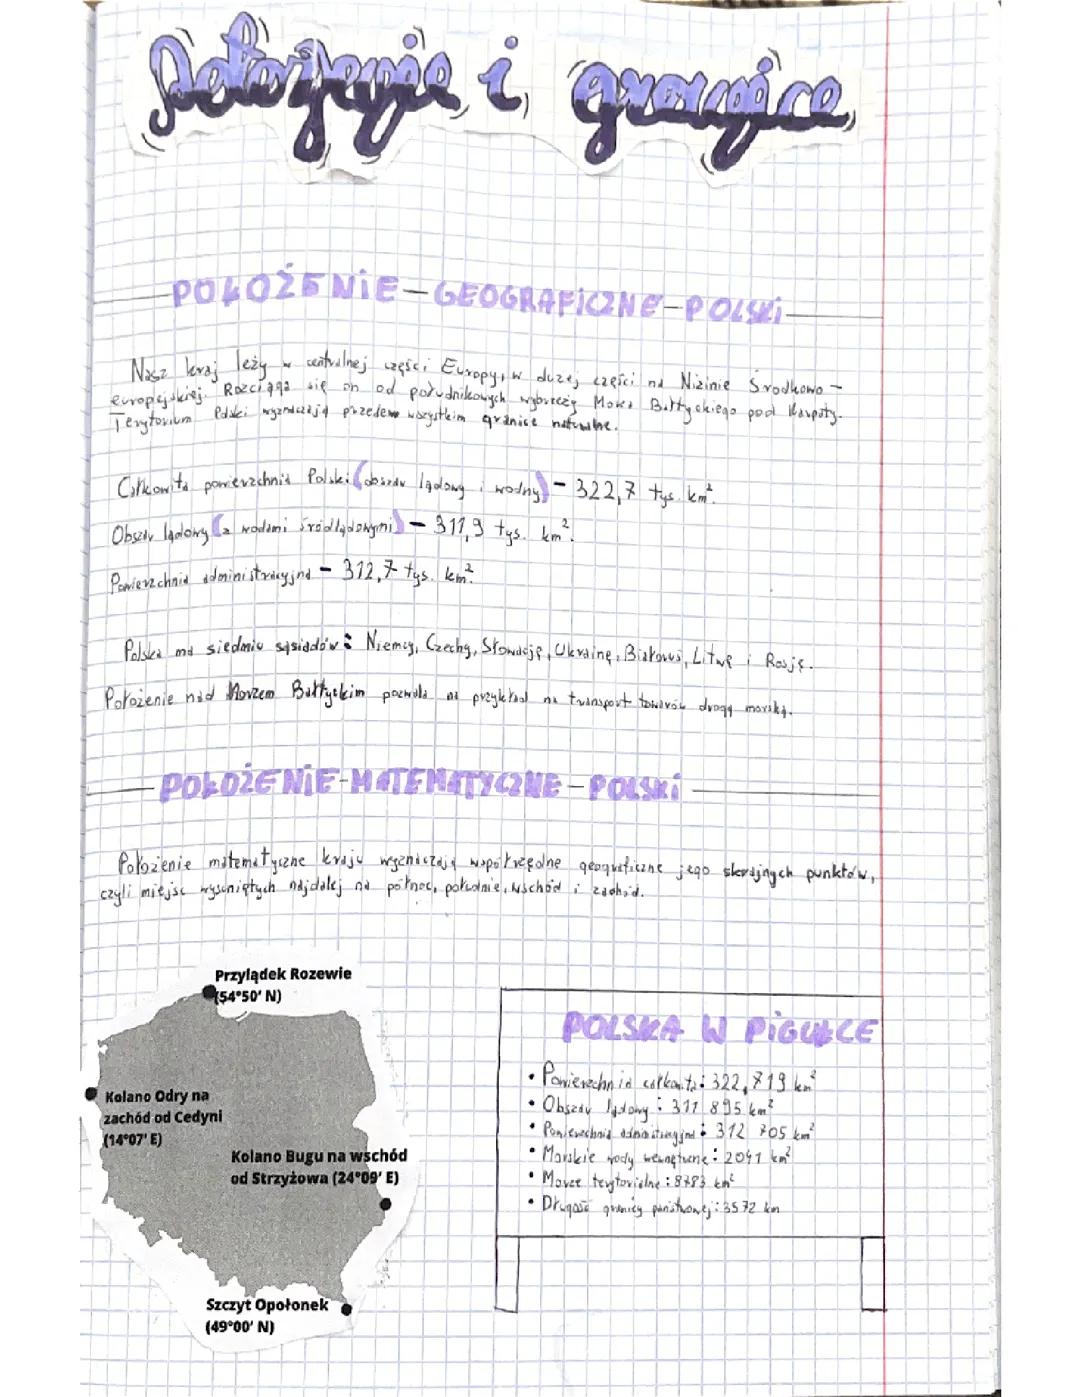 Położenie i granice
POŁOŻENIE GEOGRAFICZNE POLSKI
Nasz kraj leży w centralnej części Europy, w dużej części na Nizinie Środkowo-
europejskiej. Rozciąga się on od południkowych wybrzeży Morza Bałtyckiego pod Karpaty.
Terytorium Polski wyznaczają przedew wszystkim granice naturalne.
Całkowita powierzchnia Polski (obszar lądowy i wodny) - 322,7 tys. km².
Obszar lądowy (z wodami śródlądowymi) - 311,9 tys. km².
Powierzchnia administracyjna - 312,7 tys. km².
Polska ma siedmiu sąsiadów: Niemcy, Czechy, Słowację, Ukrainę, Białoruś, Litwę i Rosję.
Położenie nad Morzem Bałtyckim pozwala na przykład na transport towarów drogą morską.
POŁOŻENIE MATEMATYCZNE POLSKI
Położenie matematyczne kraju wyznaczają współrzędne geograficzne jego skrajnych punktów,
czyli miejsc wysuniętych najdalej na północ, południe, wschód i zachód.
Przylądek Rozewie
(54°50' N)
Kolano Odry na
zachód od Cedyni
(14°07' E)
Kolano Bugu na wschód
od Strzyżowa (24°09' E)
Szczyt Opołonek
(49°00' N)
POLSKA W PIGUŁCE
• Powierzchnia całkowita: 322,719 km²
• Obszar lądowy: 311 895 km²
• Powierzchnia administracyjna: 312 705 km²
• Morskie wody wewnętrzne: 2041 km²
• Morze terytorialne: 8783 km²
• Długość granicy państwowej: 3572 km